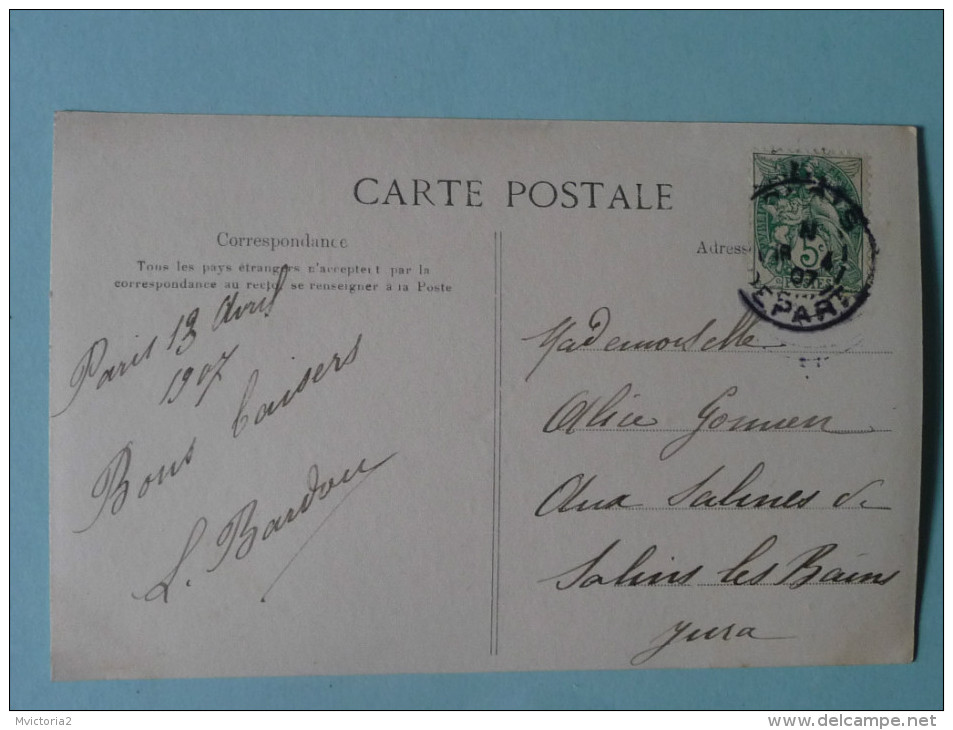 CARTE POSTALE
Correspondance
Tous les pays étrangers n'acceptent par la
correspondance au recto, se renseigner à la Poste
Paris 13 Avril
1907
Bons baisers
L. Bardou
Adresse
5c
POSTES
07
DEPART
Mademoiselle
Alice
Aux Salines de
Salins les Bains
Jura
Mvictoria2
delcampe.net